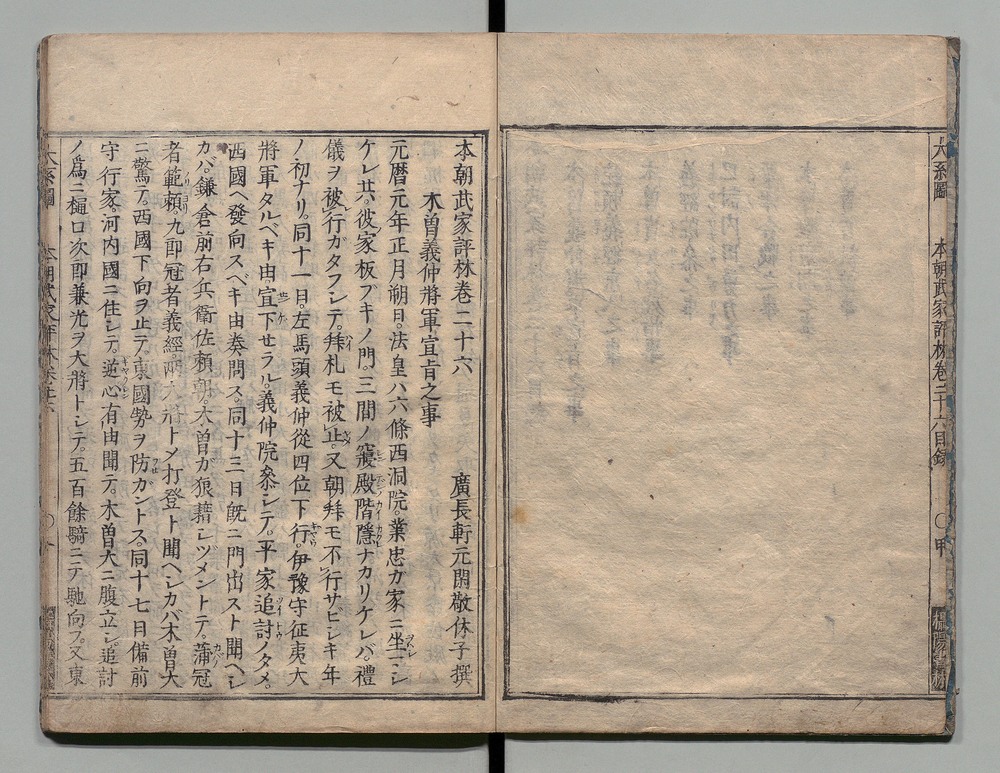 大系圖　本朝武家評林卷二十六目録　〇甲
本朝武家評林卷二十六
木曽義仲將軍宣旨之事　廣長軒元閑敬休子撰
元暦元年正月朔日。法皇ハ六條西洞院。業忠カ家ニ坐シ
ケレ共。彼家板ブキノ門。三間ノ寢殿階隱ナカリケレバ。禮
儀ヲ被行ガタフシテ。拜札モ被止。又朝拜モ不行サビシキ年
ノ初ナリ。同十一日。左馬頭義仲從四位下行。伊豫守征夷大
將軍タルベキ由宣下セラル。義仲院參シテ。平家追討ノタメ。
西國ヘ發向スベキ由奏問ス。同十三日既ニ門出スト聞ヘシ
カバ。鎌倉前右兵衛佐頼朝。木曽ガ狼藉シヅメントテ。蒲冠
者範頼。九郎冠者義經。兩大將トメ打登ト聞ヘシカバ木曽大
ニ驚テ。西國下向ヲ止テ。東國勢ヲ防ガントス。同十七日備前
守行家。河内國ニ住シテ。逆心有由聞テ。木曽大ニ腹立シ。追討
ノ爲ニ樋口次郎兼光ヲ大將トシテ。五百餘騎ニテ馳向フ。又東
大系圖　本朝武家評林卷廿六　〇